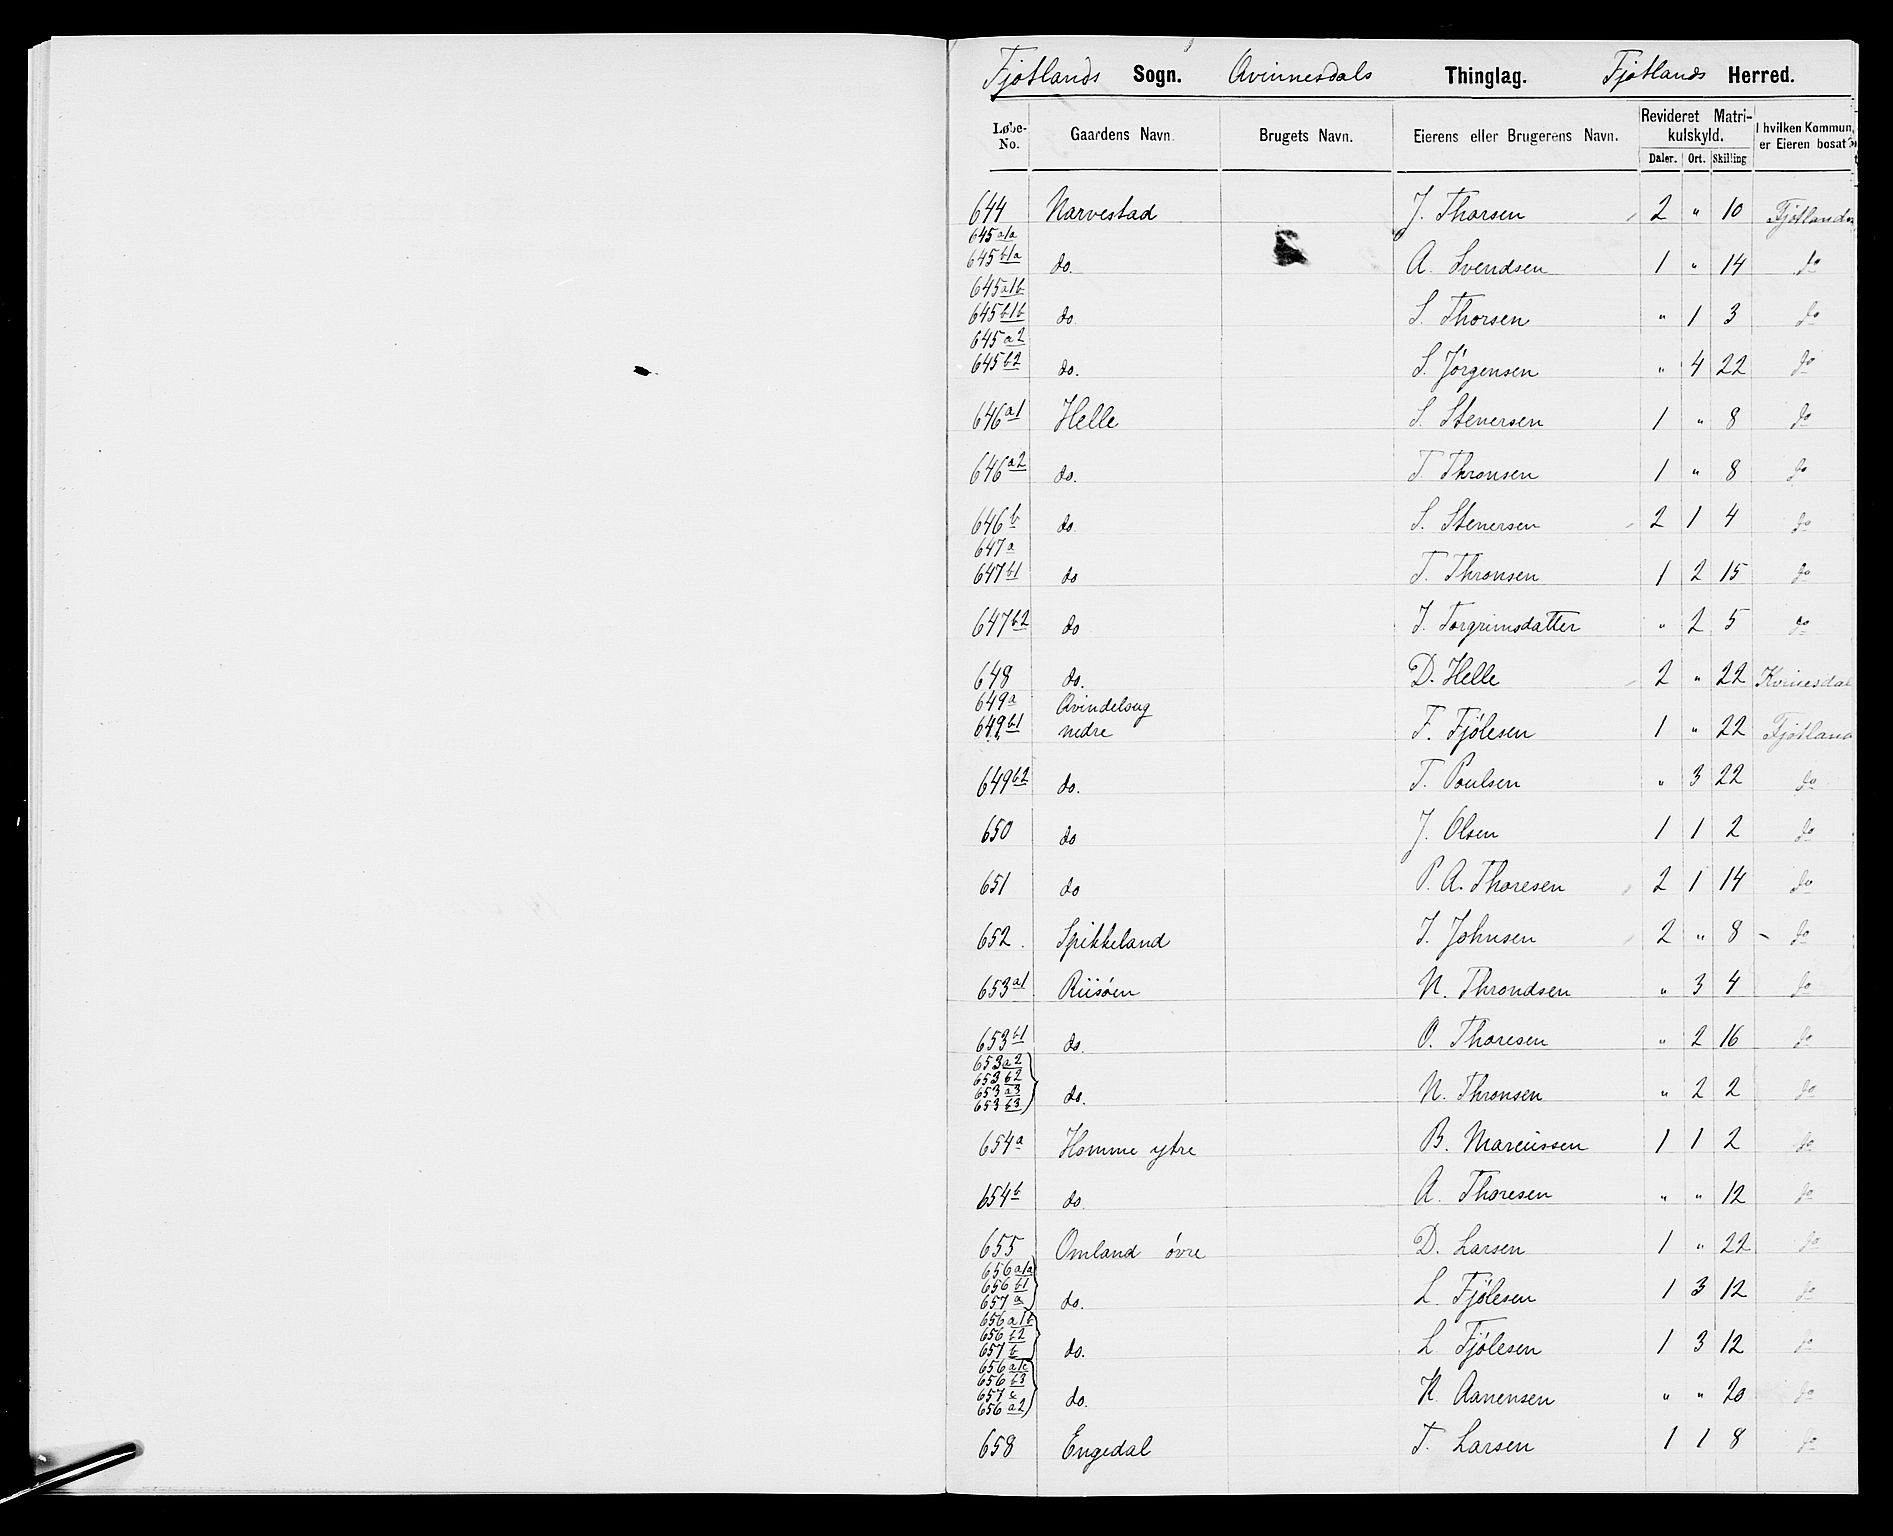 Fjotlands Sogn. Qvinnesdals Thinglag. Fjotlands Herred.
Løbe-No. Gaardens Navn. Brugets Navn. Eierens eller Brugerens Navn. Revideret Matrikulskyld. Daler. Ort. Skilling I hvilken Kommune er Eieren bosat?
644 Narvestad J. Thorsen 2 " 10 Fjotlands
645 a1a
645 b1a do. A. Svendsen 1 " 14 do
645 a1b
645 b1b do S. Thorsen " 1 3 do
645 a2
645 b2 do. S. Jørgensen " 4 22 do
646 a1 Helle S. Stenersen 1 " 8 do
646 a2 do. T. Thronsen 1 " 8 do
646 b do. S. Stenersen 2 1 4 do
647 a
647 b1 do T. Thronsen 1 2 15 do
647 b2 do J. Torgrimsdatter " 2 5 do
648 do. D. Helle 2 " 22 Kvinesdal
649 a Qvindelaug
649 b1 nedre F. Fjølesen 1 " 22 Fjotland
649 b2 do. T. Poulsen " 3 22 do
650 do J. Olsen 1 1 2 do
651 do P. A. Thoresen 2 1 14 do
652. Spikkeland J. Johnsen 2 " 8 do
653 a1 Riisöen N. Throndsen " 3 4 do
653 b1 do. O. Thoresen " 2 16 do
653 a2
653 b2
653 a3 do. N. Thronsen " 2 2 do
653 b3
654 a Homme ytre B. Marcussen 1 1 2 do
654 b do. A. Thoresen " " 12 do
655 Omland övre D. Larsen 1 " 22 do
656 a1a
656 b1
657 a do. L. Fjølesen 1 3 12 do
656 a1b
656 b2
657 b do. L. Fjølesen 1 3 12 do
656 a1c
656 b3
657 c do. K. Aanensen " " 20 do
656 a2
658 Engedal T. Larsen 1 1 8 do